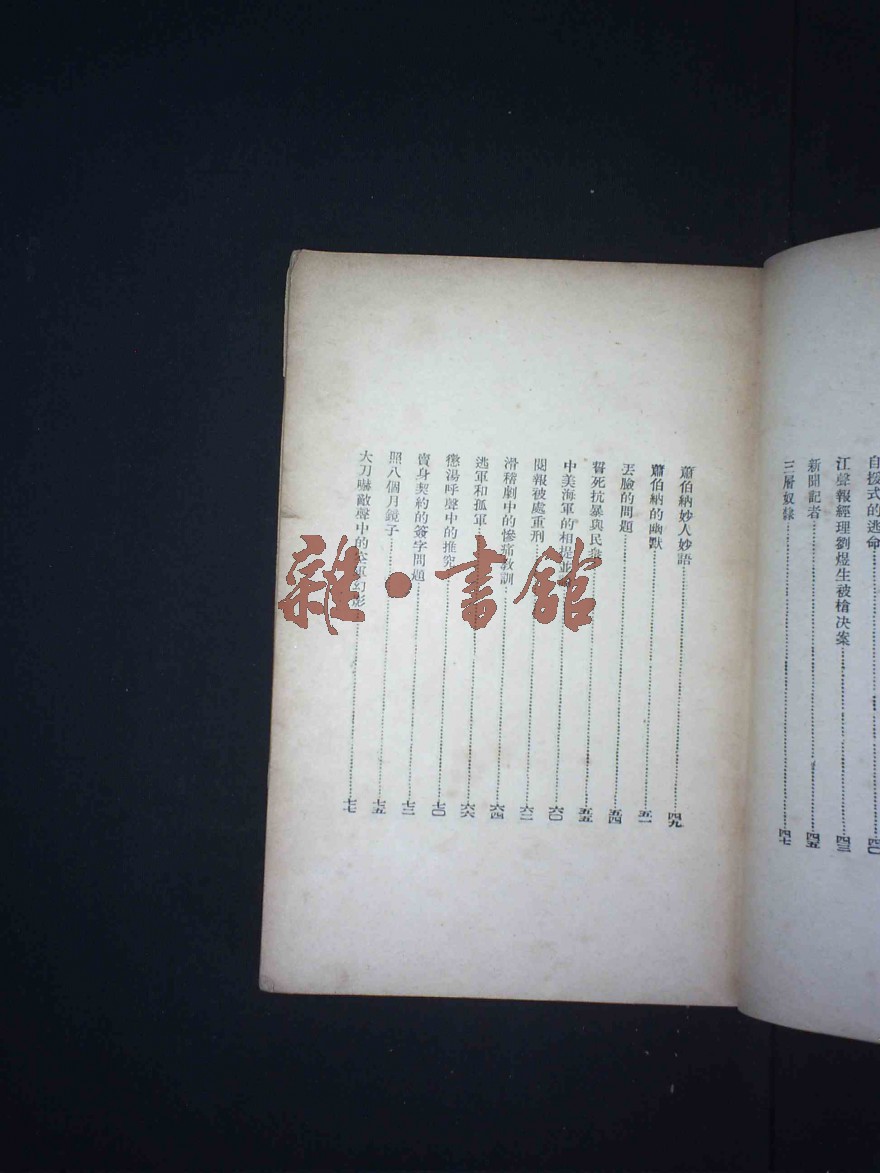 自援式的逃命 四〇
江聲報經理劉煜生被槍决案 四三
新聞記者 四五
三層奴隸 四七
蕭伯納妙人妙語 四九
蕭伯納的幽默 五一
丟臉的問題 五四
誓死抗暴與民 五五
中美海軍的相提並 六〇
閱報被處重刑 六二
滑稽劇中的慘痛教訓 六四
逃軍和孤軍 六六
懲湯呼聲中的推究 七〇
賣身契約的簽字問題 七二
照八個月鏡子 七五
大刀嚇敵聲中的空軍幻影 七七
雜·書館